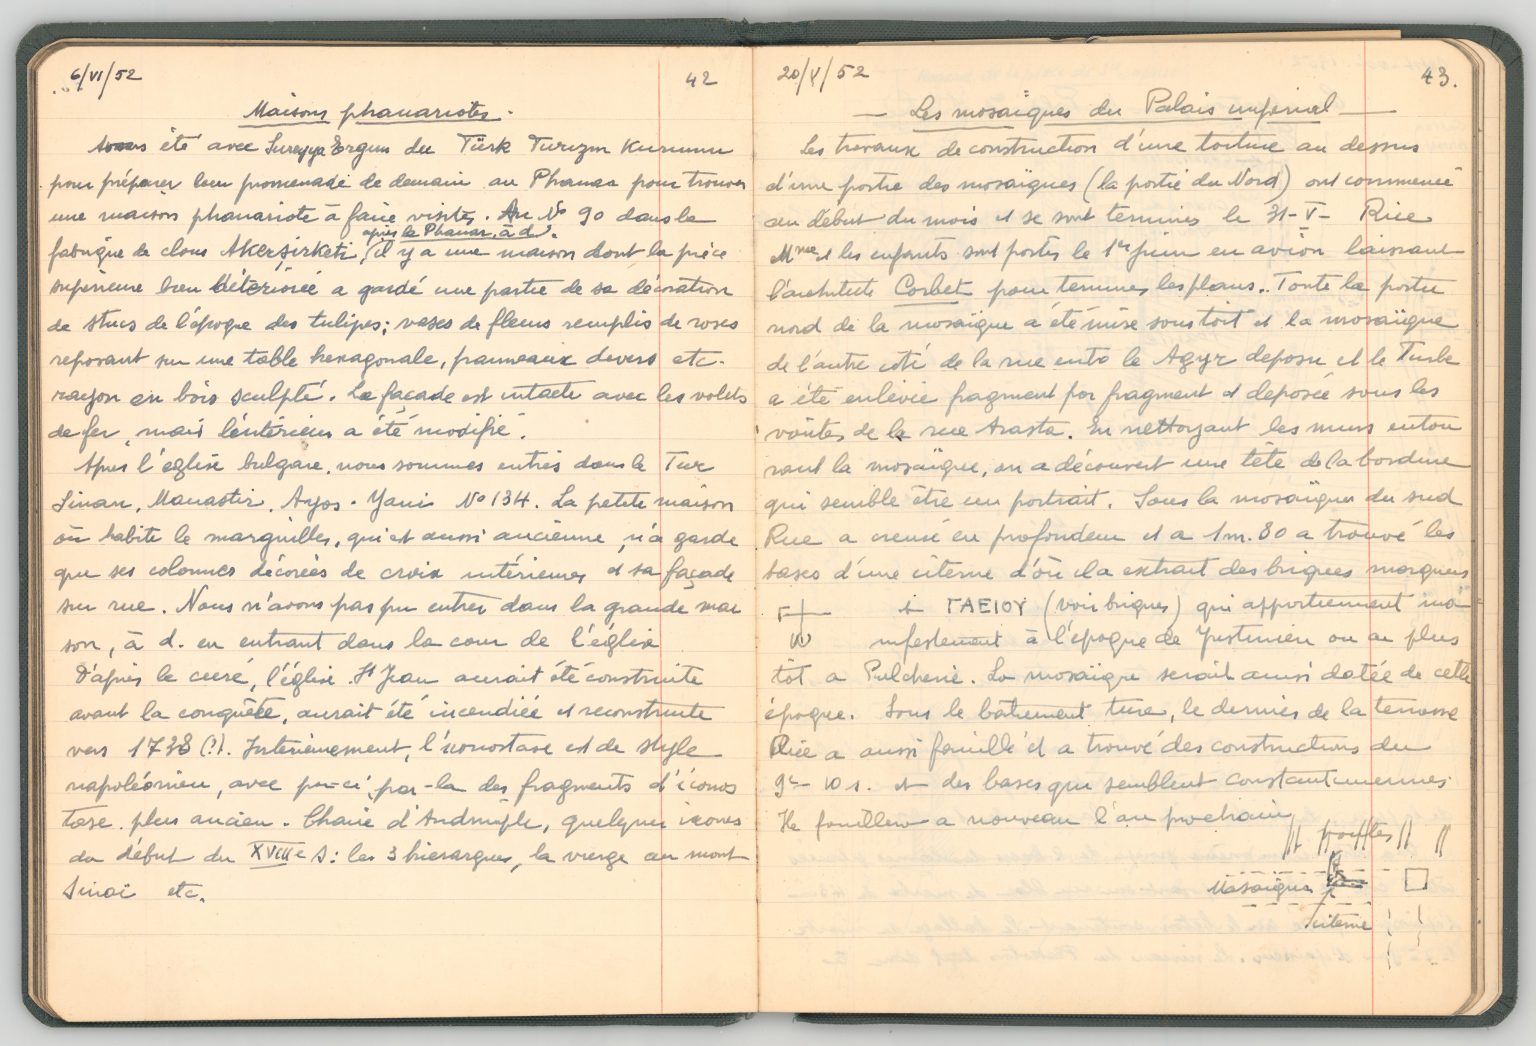 6/VI/52
42
Maisons phanariotes.
été avec Sureyya Ergun du Türk Turizm Kurumu
pour préparer leur promenade de demain au Phanar pour trouver
une maison phanariote à faire visiter. Au No 90 dans la
après le Phanar, à d.
fabrique de clous Akersirketi, il y a une maison dont la pièce
supérieure bien détériorée a gardé une partie de sa décoration
de stucs de l'époque des tulipes; vases de fleurs remplis de roses
reposant sur une table hexagonale, panneaux divers etc.
rayon en bois sculpté. La façade est intacte avec les volets
de fer, mais l'intérieur a été modifié.
Après l'église bulgare, nous sommes entrés dans le Tur
Sinan, Monastir, Ayos-Yani No 134. La petite maison
où habite le marguiller, qui est aussi ancienne, n'a gardé
que ses colonnes décorées de croix intérieures et sa façade
sur rue. Nous n'avons pas pu entrer dans la grande mai
son, à d. en entrant dans la cour de l'église
D'après le curé, l'église St Jean aurait été construite
avant la conquête, aurait été incendiée et reconstruite
vers 1738 (?). Interieurement, l'iconostase est de style
napoléonien, avec par-ci par-la des fragments d'iconos
tase plus ancien. Chaire d'Andrinople, quelques icones
du début du XVIIIe s: les 3 hierarques, la vierge au mont
Sinaï etc.
20/V/52
43.
— Les mosaïques du Palais impérial —
Les travaux de construction d'une toiture au dessus
d'une partie des mosaïques (la partie du Nord) ont commencé
au début du mois et se sont terminés le 31-V- Rice
Mme et les enfants sont partis le 1er juin en avion laissant
l'architecte Corbet pour terminer les plans. Toute la partie
nord de la mosaïque a été mise sous toit et la mosaïque
de l'autre côté de la rue entre le Agyr deposu et le Turbe
a été enlevée fragment par fragment et deposée sous les
voûtes de la rue Arasta. En nettoyant les murs entou
rant la mosaïque, on a découvert une tête de la bordure
qui semble être un portrait. Sous la mosaïque du sud
Rice a creusé en profondeur et a 1m.80 a trouvé les
bases d'une citerne d'où il a extrait des briques marquées
et ΓΑΕΙΟΥ (voir briques) qui appartiennent ma
nifestement à l'époque de Justinien ou au plus
tôt a Pulcherie. La mosaïque serait aussi datée de cette
époque. Sous le bâtiment turc, le dernier de la terrasse
Rice a aussi fouillé et a trouvé des constructions du
9e-10 s. et des bases qui semblent constantiniennes.
Il fouillera a nouveau l'an prochain
Mosaïque
citerne